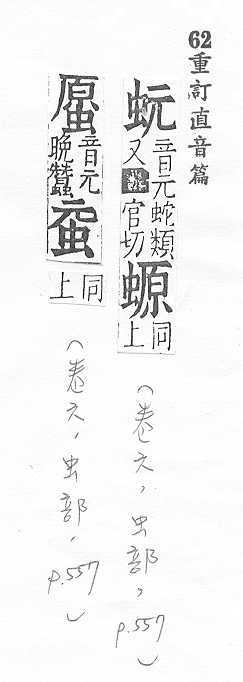 62重訂直音篇
蚖
音元蛇類
又官切
螈
同上
（卷六，虫部，p.557）
音元
晚蠶
同上
（卷六，虫部，p.557）